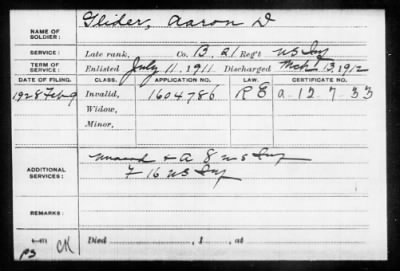 NAME OF SOLDIER: Glider, Aaron D
SERVICE: Late rank, Co. B, 21 Reg't US Inf
TERM OF SERVICE: Enlisted July 11, 1911. Discharged Mch 13, 1912
DATE OF FILING. CLASS. APPLICATION NO. LAW. CERTIFICATE NO.
1928 Feb 9 Invalid, 1604786 a-12-7-33
Widow,
Minor,
ADDITIONAL SERVICES: + A 8 US Inf
F 16 US Inf
REMARKS:
Died , 1 , at